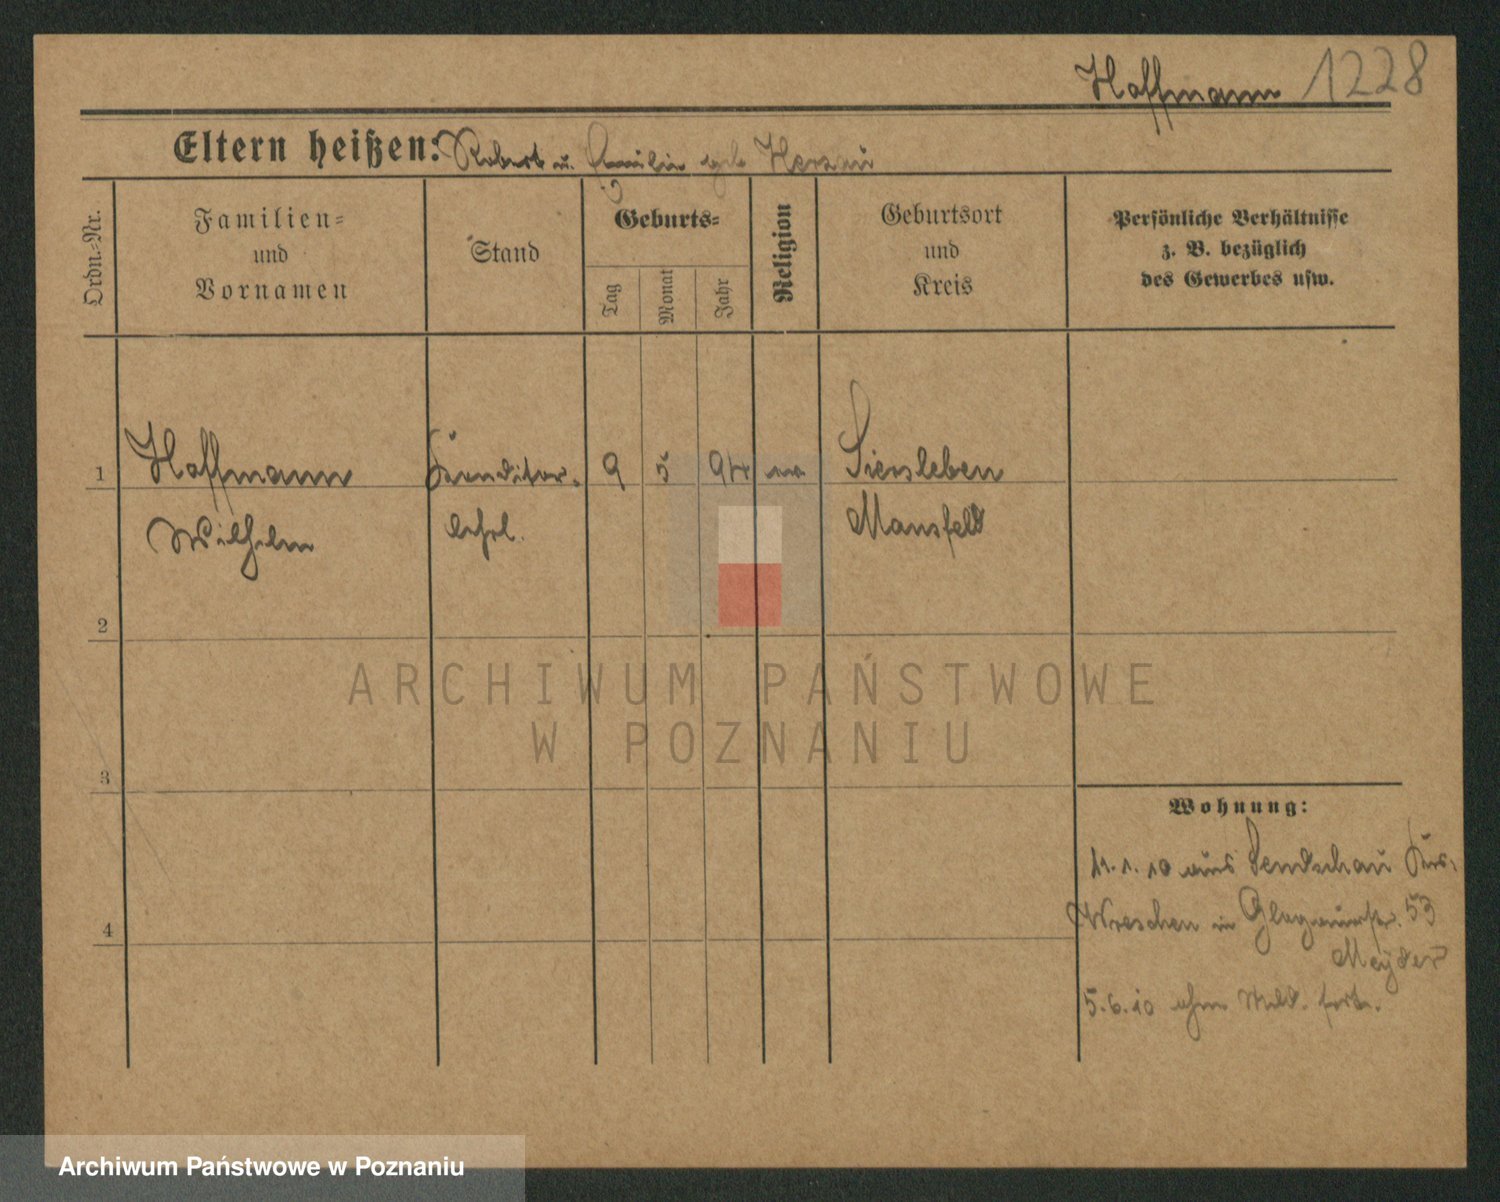 Hoffmann 1228
Eltern heißen: Robert u. geb
Ordn.-Nr.
Familien-
und
Vornamen
Stand
Geburts-
Tag
Monat
Jahr
Religion
Geburtsort
und
Kreis
Persönliche Verhältnisse
z. B. bezüglich
des Gewerbes usw.
1 Hoffmann Konditor- 9 5 94 ev Siersleben
Wilhelm lehrl. Mansfeld
2
3
4
Wohnung:
11.1.10 aus Sendschau Krs.
Wreschen in Glogauerstr. 53
5.6.10 ohne Meld. fort.
ARCHIWUM PAŃSTWOWE
W POZNANIU
Archiwum Państwowe w Poznaniu